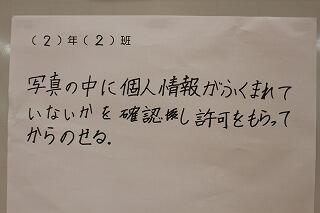 （2）年（2）班
写真の中に個人情報がふくまれて
いないかを確認し許可をもらって
からのせる.